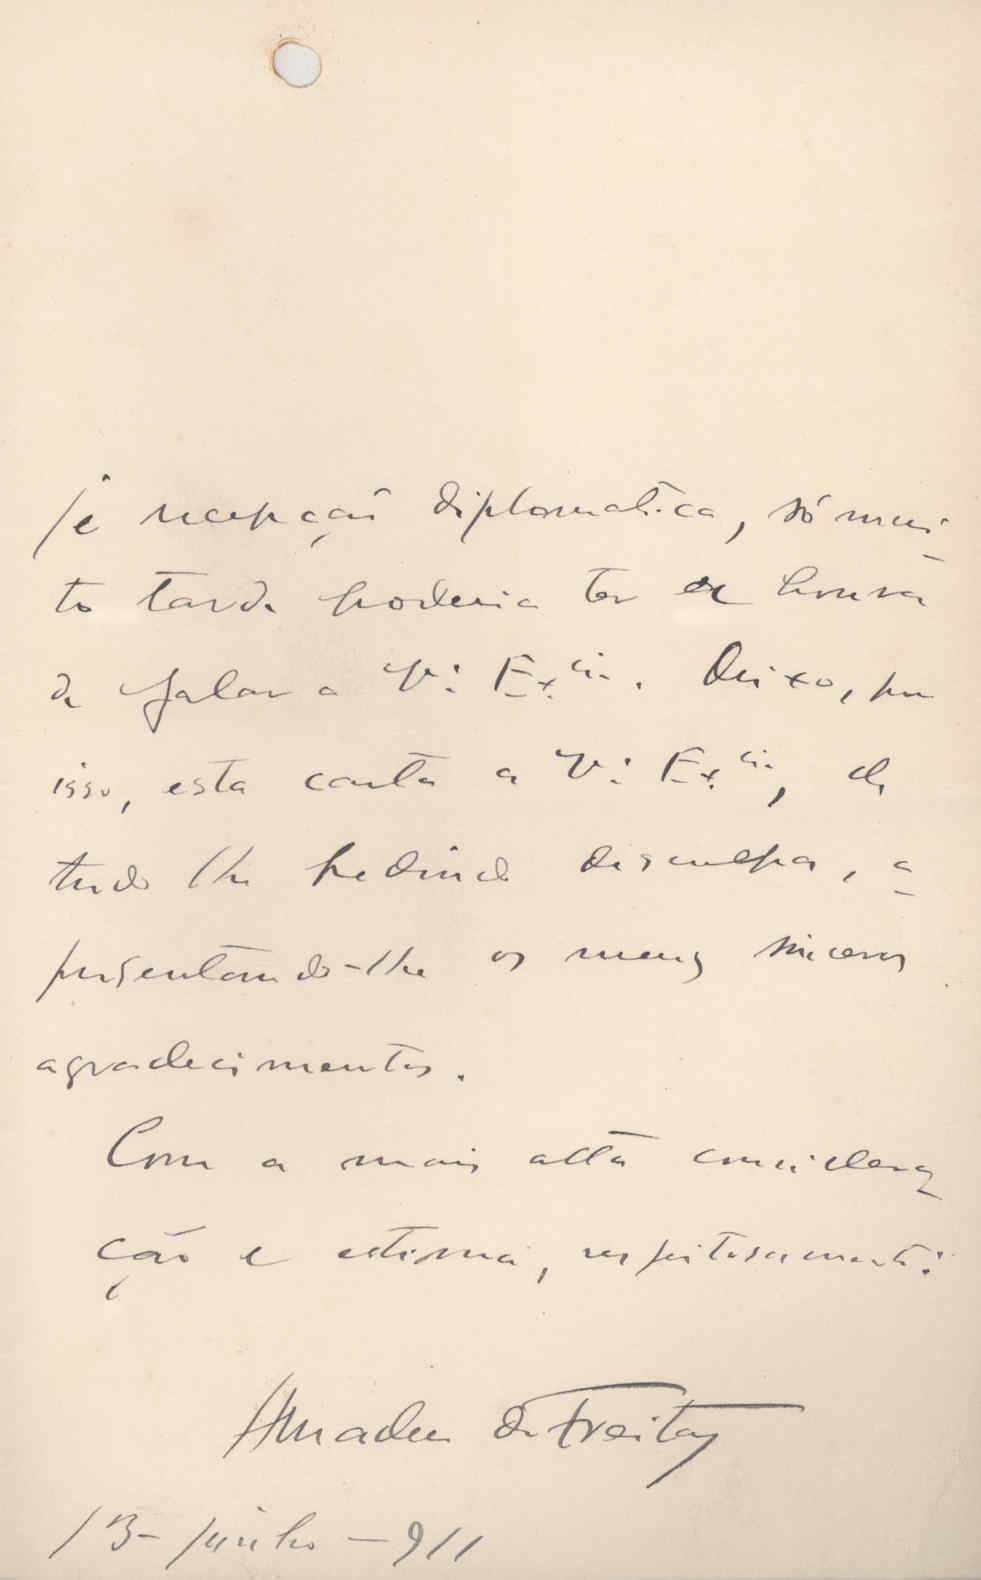 je recepção diplomatica, só mui-
to tarde poderia ter a honra
de falar a V. Ex.cia. Deixo, por
isso, esta carta a V. Ex.cia, de
tudo lhe pedindo desculpa, a-
presentando-lhe os meus sinceros
agradecimentos.
Com a mais alta considera-
ção e estima, respeitosamente:
Amadeu de Freitas
13-junho-911